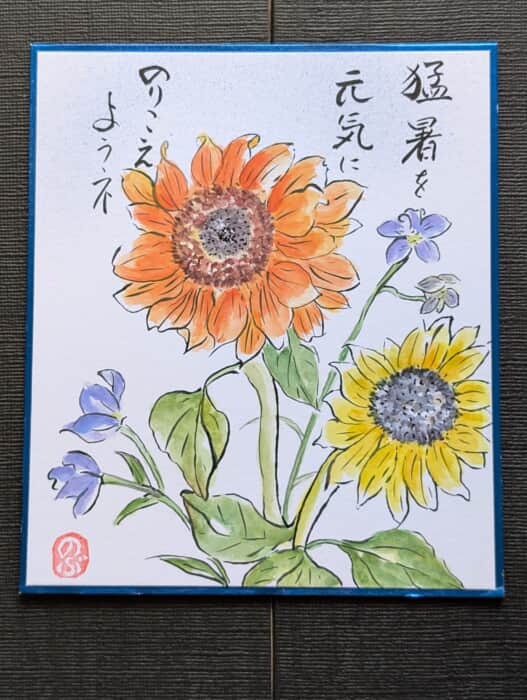 猛暑を
元気に
のりこえ
ようネ
のぶ